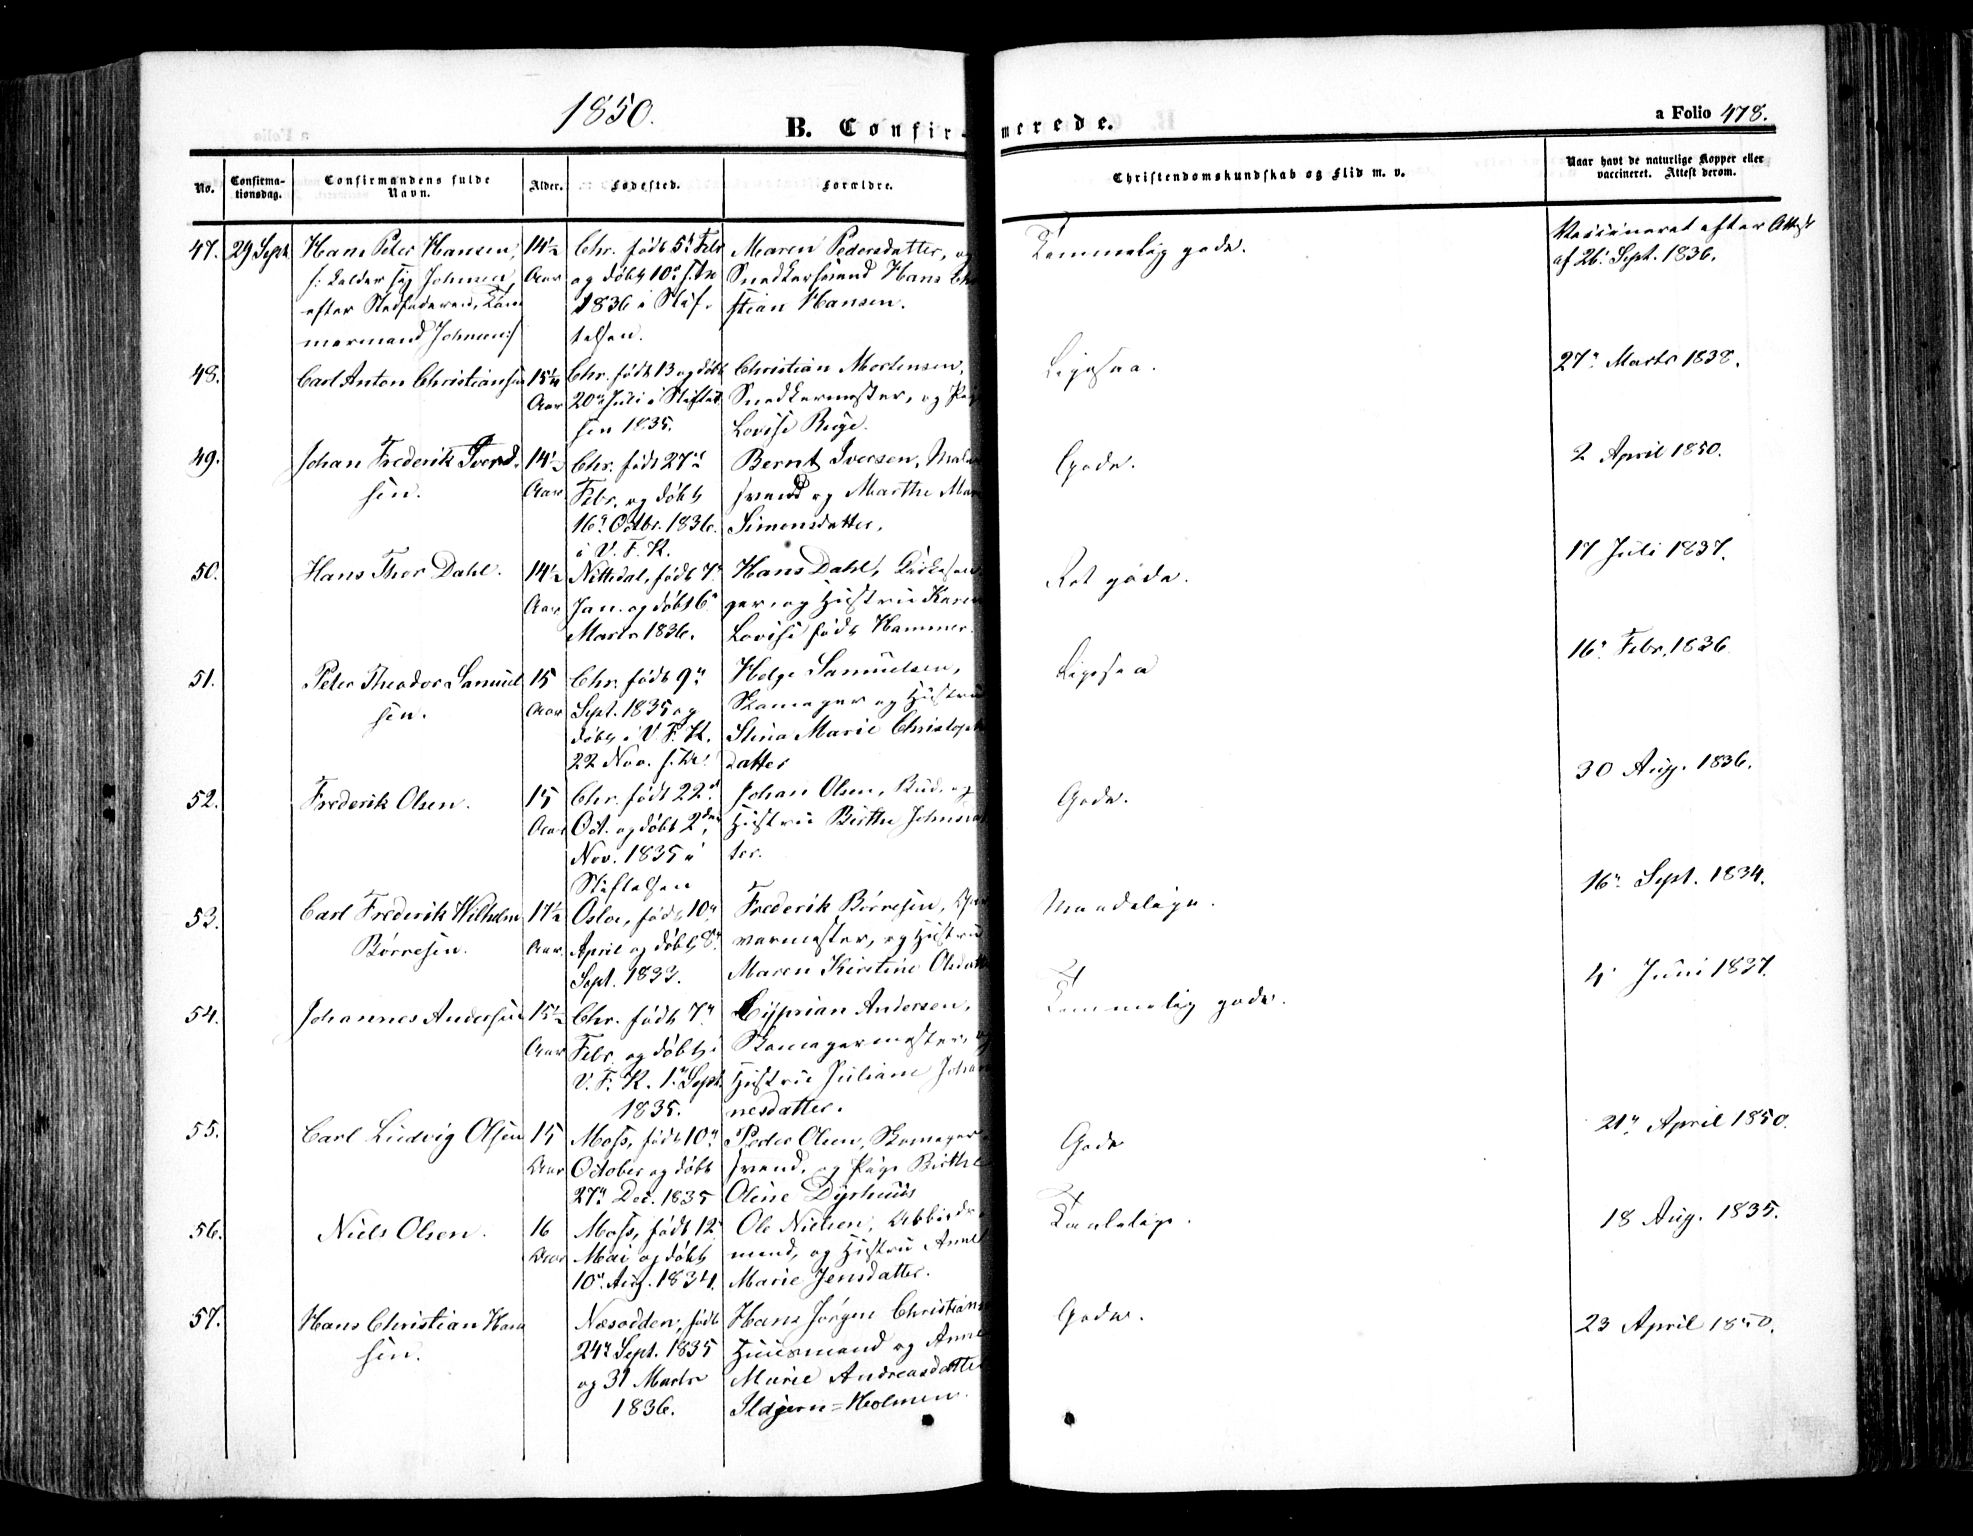 1850.
B. Confirmerede.
a Folio 478.
No.
Confirma-
tionsdag.
Confirmandens fulde
Navn.
Alder.
Fødested.
Forældre.
Christendomskundskab og Flid m. v.
Naar havt de naturlige Kopper eller
vaccineret. Attest derom.
47. 29 Sept.
Hans Peter Hansen,
/: kalder sig Johnsen,
efter Stedfaderen, Tøm
mermand Johnsen :/
14½
Aar
Chr. født 5t Febr
og døbt 10n
1836 i Stif-
telsen.
Maren Pedersdatter, og
Snedkersvend Hans Chr
stian Hansen.
Temmelig gode.
Vaccineret efter Attest
af 26. Sept. 1836.
48.
Carl Anton Christiansen
15¼
Aar
Chr. født 13 og døbt
20n Juli i Stiftel
sen 1835.
Christian Mortensen,
Snedkermester, og Pige
Lovise Ruge.
Ligesaa.
27n Marts 1838.
49.
Johan Frederik Iverd-
sen.
14½
Aar
Chr. født 27n
Febr. og døbt
16n Octbr. 1836.
i V. F. K.
Bernt Iversen, Maler
svend og Marthe Mar
Simensdatter.
Gode.
2 April 1850.
50.
Hans Thor Dahl.
14½
Aar
Nittedal, født 7n
Jan. og døbt 6n
Marts 1836.
Hans Dahl, Kirkesan
ger, og Hustru Karen
Lovise født Hammer.
Ret gode.
17 Juli 1837.
51.
Peter Theodor Samuel
sen.
15
Aar
Chr. født 9n
Sept. 1835 og
døbt i V. F. K.
22 Nov.
Helge Samuelsen,
Skomager og Hustru
Stina Marie Christoph
datter
Ligesaa
16n Febr. 1836
52.
Frederik Olsen.
15
Aar
Chr. født 22n
Oct. og døbt 2den
Nov. 1835 i
Stiftelsen
Johan Olsen, Bud, og
Hustru Birthe Johnsdat
ter.
Gode.
30 Aug. 1836.
53.
Carl Frederik Wilhelm
Børresen.
17½
Aar
Osloe, født 10n
April og døbt 8n
Sept. 1833.
Frederik Børresen,
vermester, og Hustru
Maren Kirstine Olsdatt
Maadelige.
16n Sept. 1834.
54.
Johannes Andersen
15½
Aar
Chr. født 7n
Febr. og døbt i
V. F. K. 1n Sept.
1835.
Cyprian Andersen,
Skomagermester, og
Hustru Juliane Johan
nesdatter.
Temmelig gode.
4 Juni 1837.
55.
Carl Ludvig Olsen
15
Aar
Moss, født 10n
October og døbt
27n Dec. 1835
Peder Olsen, Skomager
svend, og Pige Birthe
Oline Dyrhuus
Gode
21n April 1850.
56.
Niels Olsen.
16
Aar
Moss, født 12
Mai og døbt
10n Aug. 1834.
Ole Nielsen, Arbeids-
mand, og Hustru Anne
Marie Jensdatter.
Taalelige.
18 Aug. 1835.
57.
Hans Christian Han
sen.
Næsodden, født
24n Sept. 1835
og 31 Marts
1836.
Hans Jørgen Christians
Huusmand og Anne
Marie Andreasdatter
Ildjern=Holmen.
Gode.
23 April 1850.